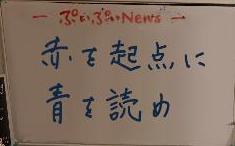 ー ぷいぷいNews ー
赤を起点に
青を読め